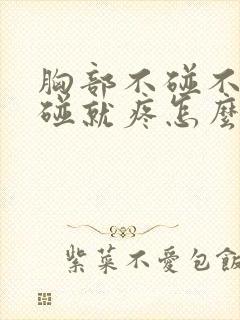 胸部不碰不
碰就疼怎麼
紫菜不愛包飯